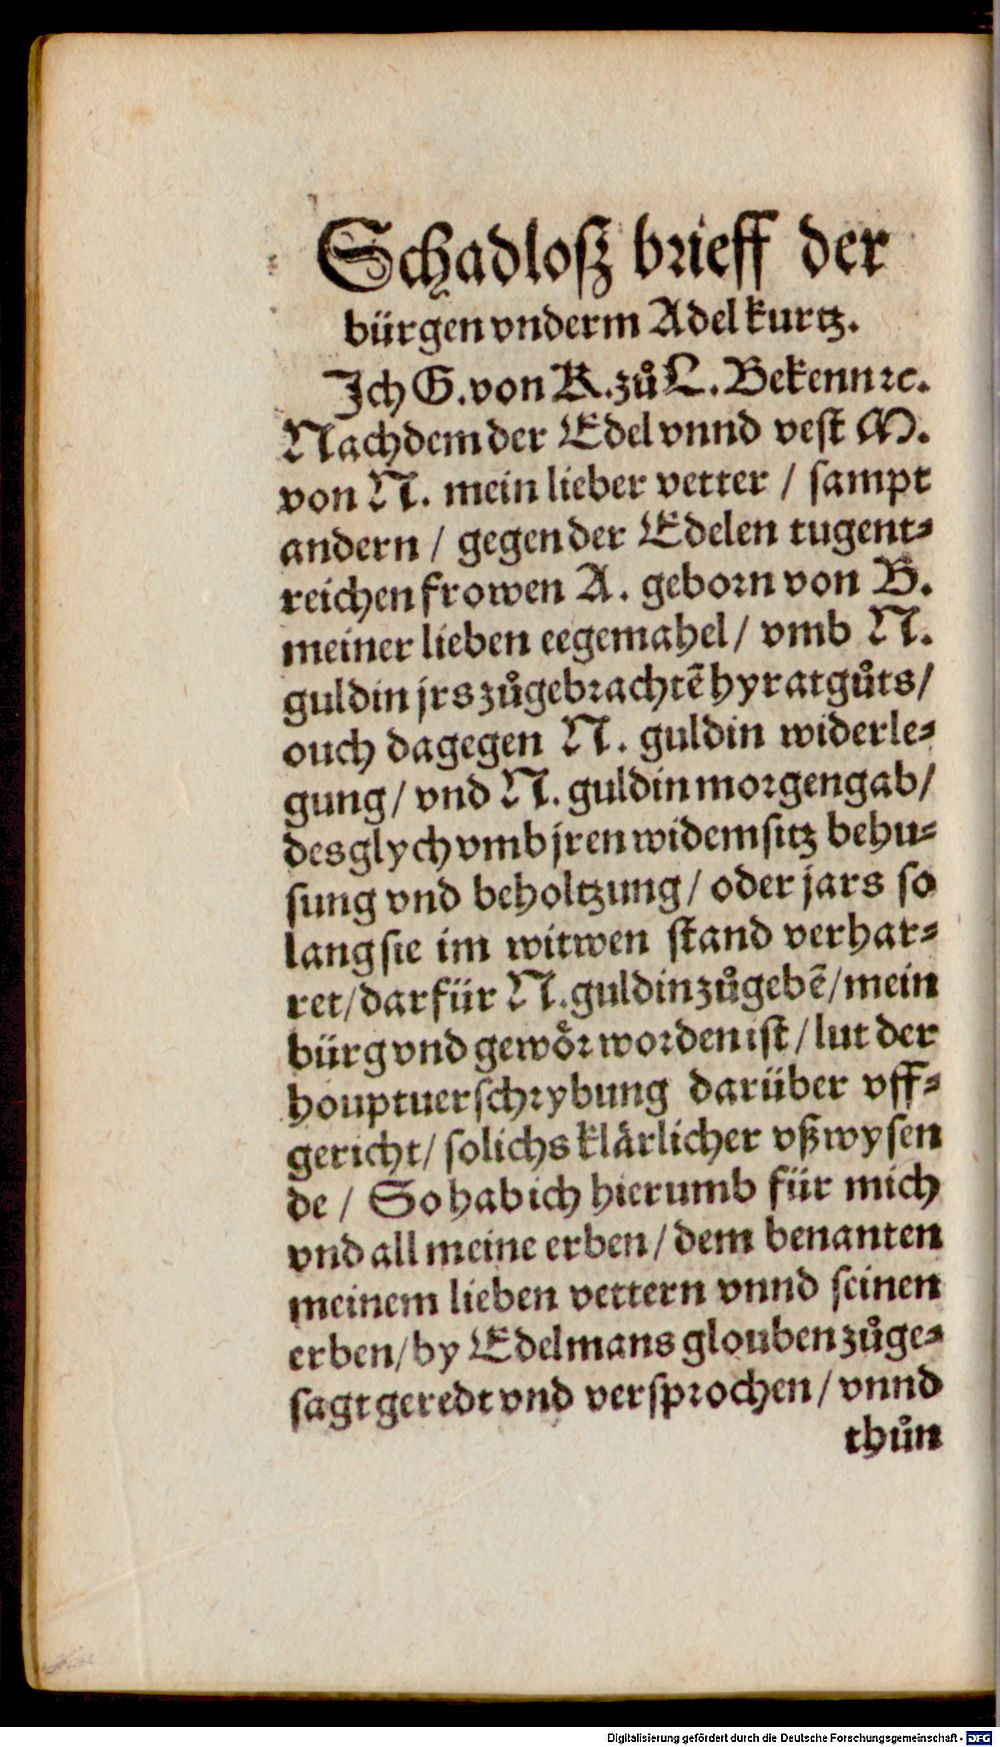 Schadlosz brieff der
bürgen vnderm Adel kurtz.
Ich G. von K. zů L. Bekenn ꝛc.
Nachdem der Edel vnnd vest M.
von N. mein lieber vetter / sampt
andern / gegen der Edelen tugent⸗
reichen frowen A. geborn von B.
meiner lieben eegemahel / vmb N.
guldin jrs zůgebrachtē hyratgůts /
ouch dagegen N. guldin widerle⸗
gung / vnd N. guldin morgengab /
desglych vmb jren widemsitz behu⸗
sung vnd beholtzung / oder jars so
lang sie im witwen stand verhar⸗
ret / darfür N. guldin zůgebē / mein
bürg vnd gewoͤr worden ist / lut der
houptuerschrybung darüber vff⸗
gericht / solichs klaͤrlicher vßwysen
de / So hab ich hierumb für mich
vnd all meine erben / dem benanten
meinem lieben vettern vnnd seinen
erben / by Edelmans glouben zůge⸗
sagt geredt vnd versprochen / vnnd
thůn
Digitalisierung gefördert durch die Deutsche Forschungsgemeinschaft - DFG